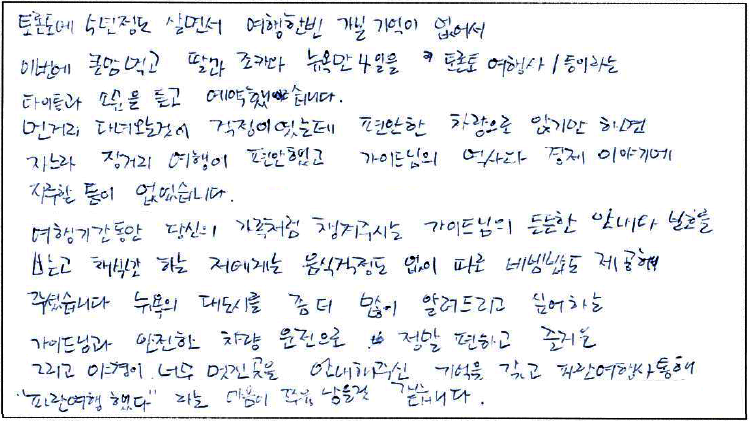 토론토에 5년정도 살면서 여행한번 가본 기억이 없어서
이번에 큰맘먹고 딸과 조카와 뉴욕만 4일을 토론토 여행사 1등이라는
타이틀과 소문을 듣고 예약했습니다.
먼거리 다녀오는것이 걱정이었는데 편안한 차량으로 앉기만 하면
되느라 장거리 여행이 편안했고 가이드님의 역사와 경제 이야기에
지루할 틈이 없었습니다.
여행기간동안 당신의 가족처럼 챙겨주시는 가이드님의 든든한 안내와 보호를
받고 채식만 하는 저에게는 음식걱정도 없이 따로 비빔밥도 제공해
주셨습니다 뉴욕의 대도시를 좀 더 많이 알려드리고 싶어하는
가이드님과 안전한 차량 운전으로 정말 편하고 즐거운
그리고 야경이 너무 멋진곳을 안내해주신 기억을 갖고 파란여행사 통해
"파란여행 했다" 라는 마음이 남을것 같습니다.